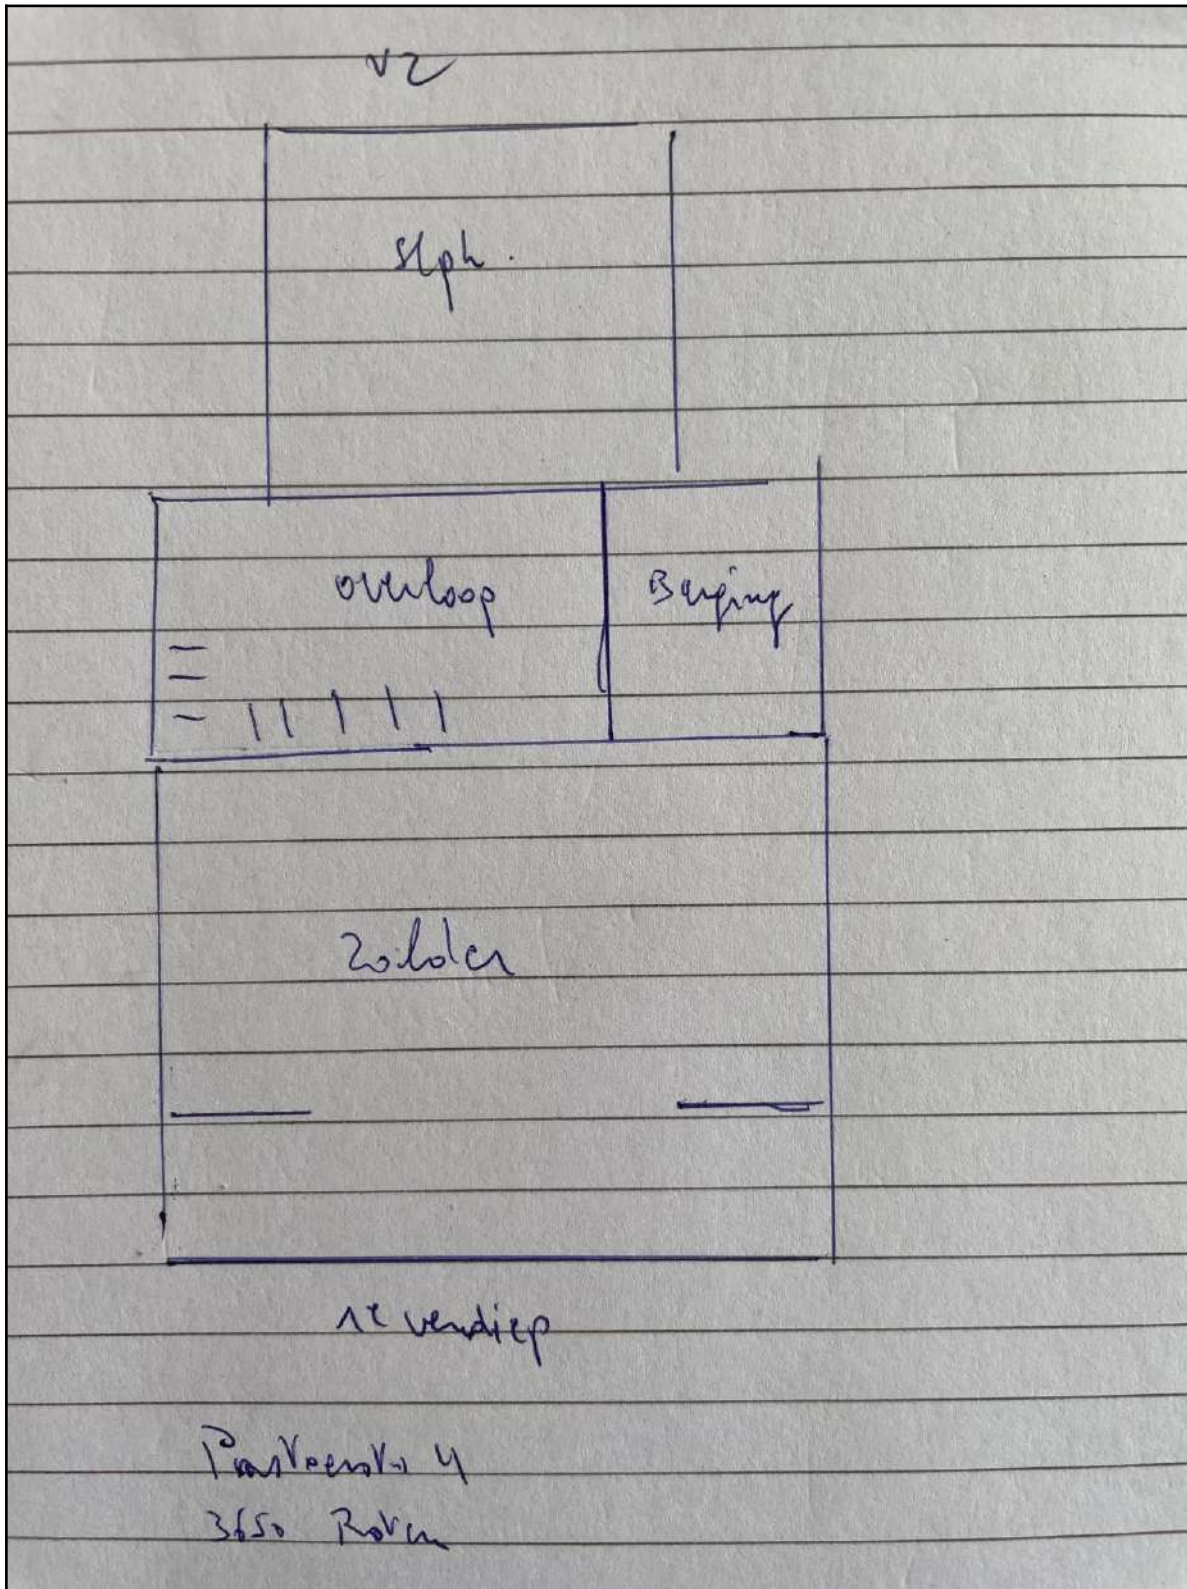 V2
Slpk.
overloop
Berging
Zolder
1e verdiep
4
3650 Rotem